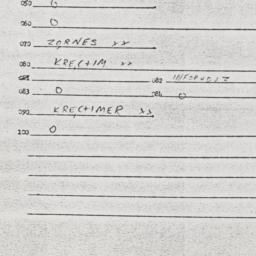 050 0
060 0
070 ZORNES xx
080
082
083 0 084 0
090 KRECHIMER xx
100 0